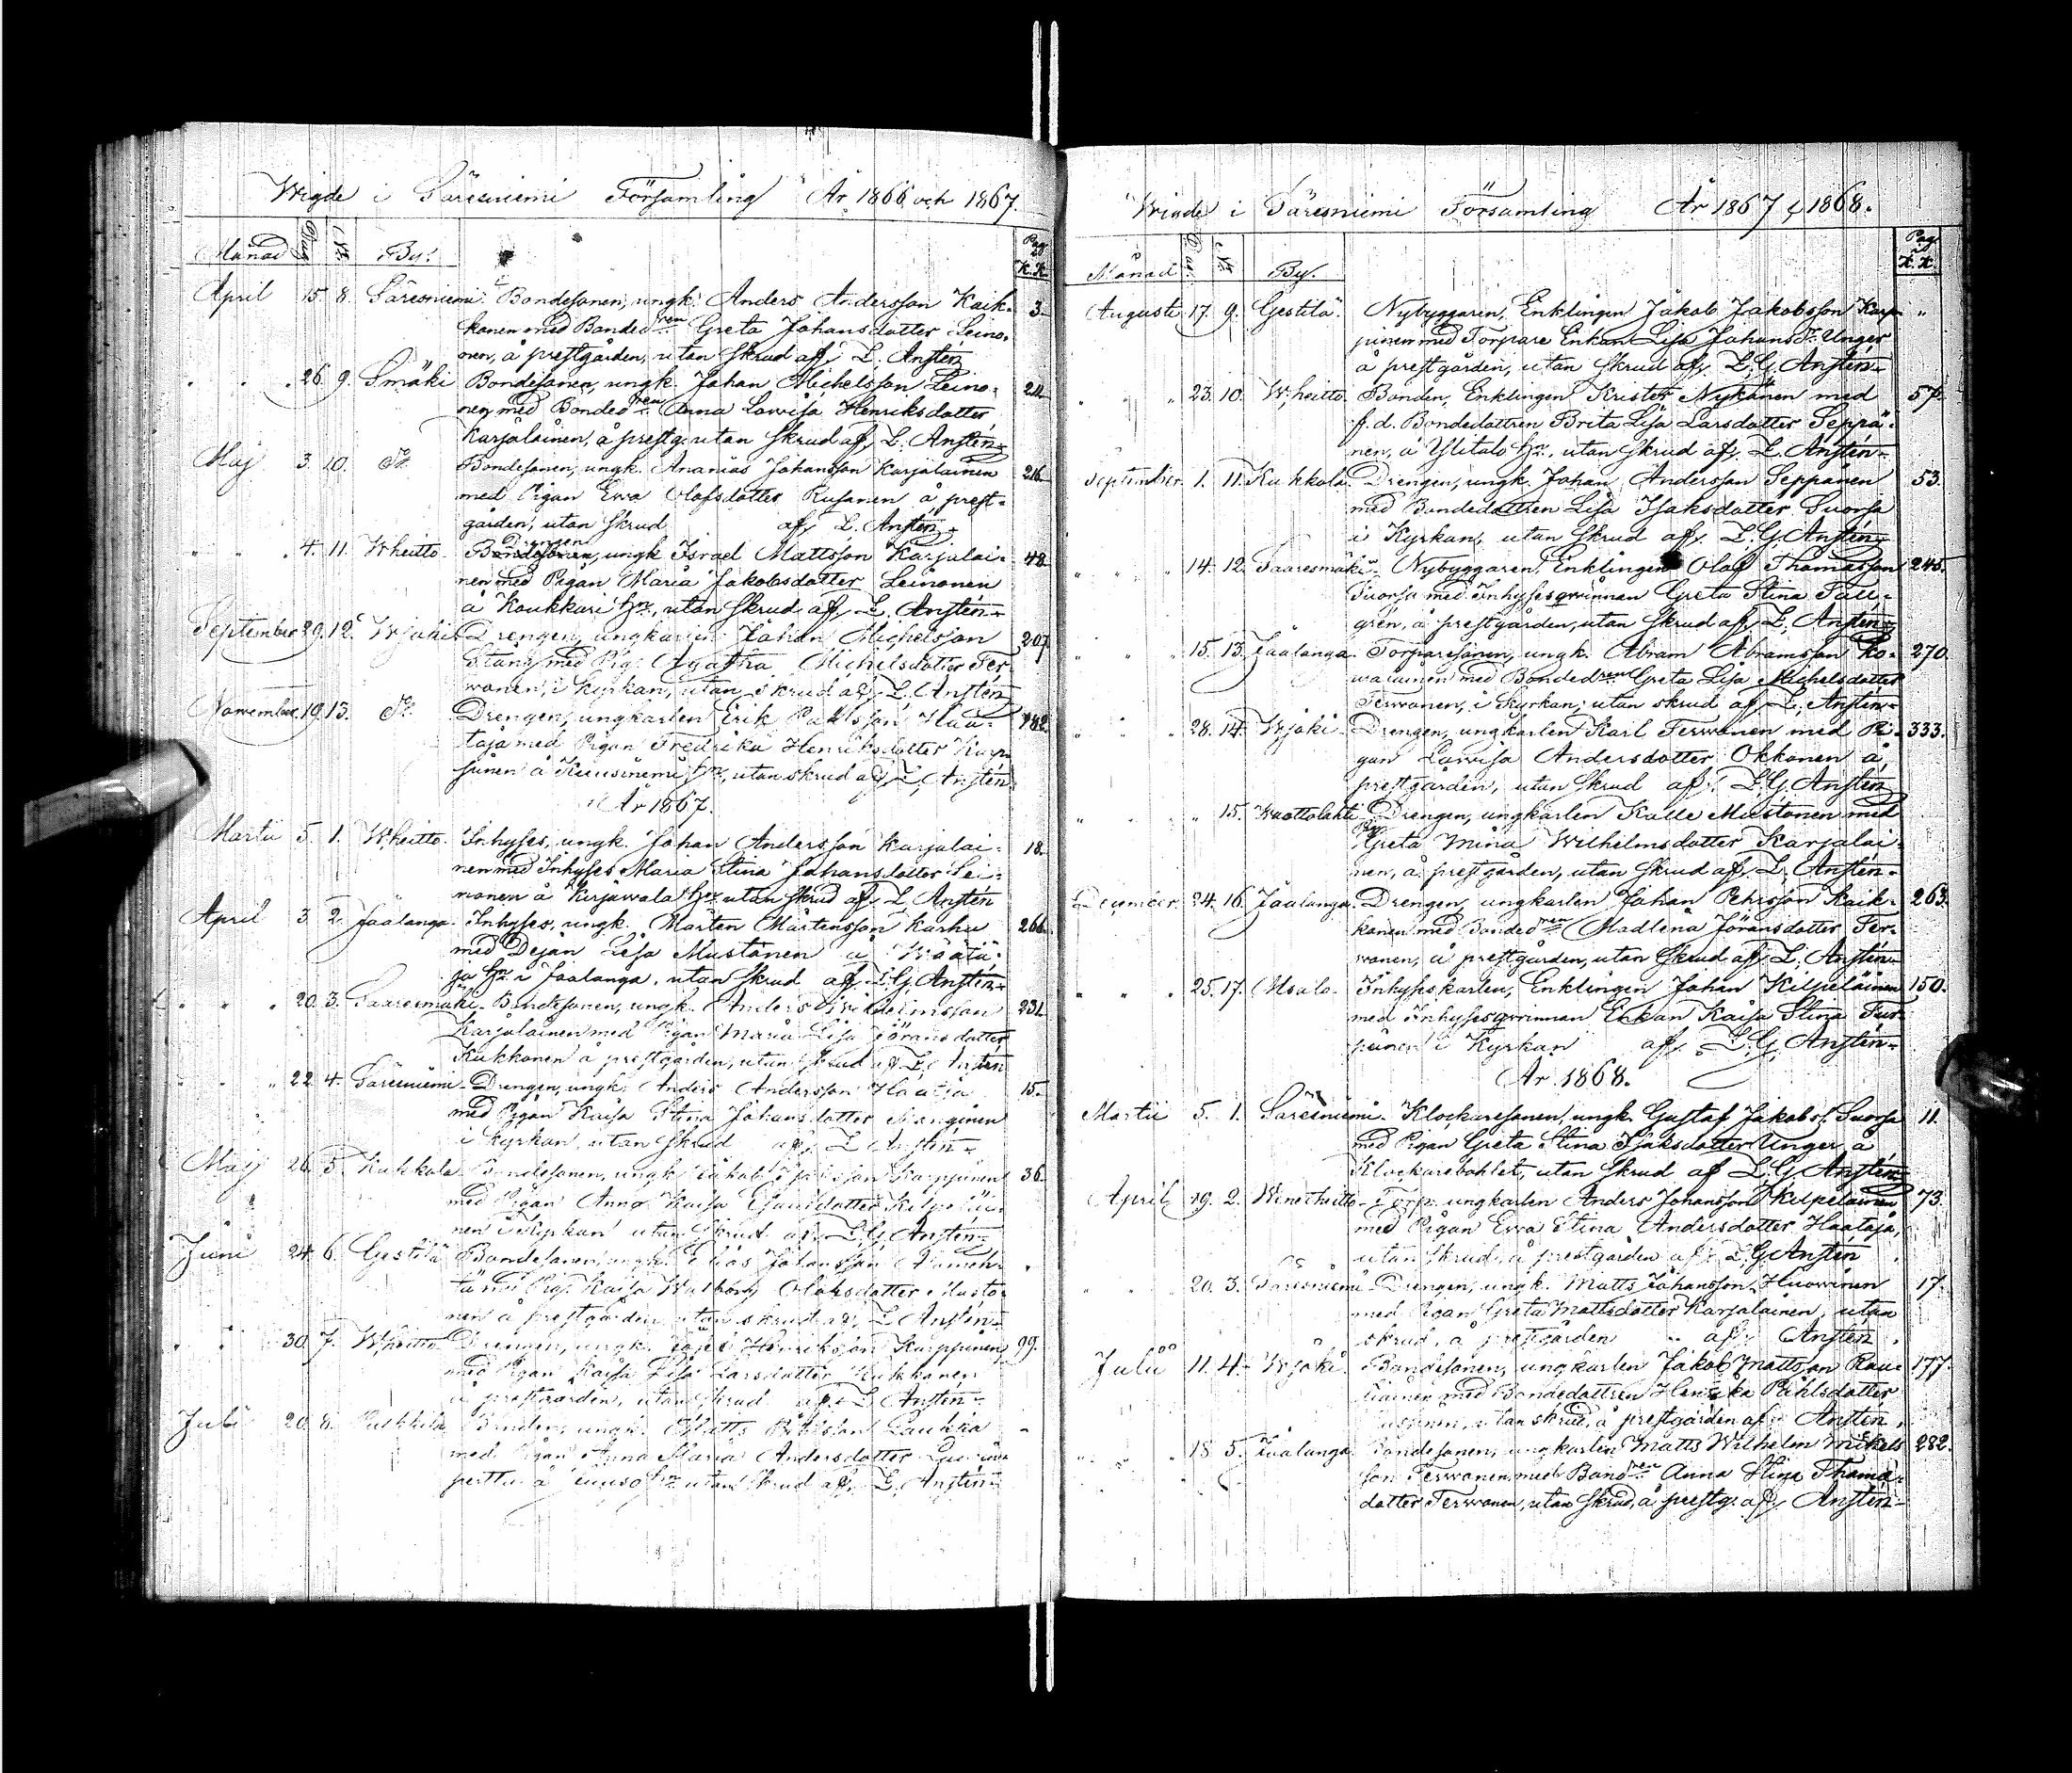 Wigde i Säresniemi Församling År 1866 och 1867.
Månad Dag N: By. Pag. i K.K.
April 15. 8. Säresniemi. Bondesonen, ungk. Anders Andersson Kaik- 3.
konen med Bondedren Greta Johansdotter Leino-
nen, å prestgården, utan skrud af L. Anstén
" " 26. 9. Smäki Bondesonen, ungk. Johan Michelsson Leino- 24.
nen med Bondedren Anna Lowisa Henriksdotter
Karjalainen, å prestg. utan skrud af L. Anstén
Maj 3. 10. Do Bondesonen, ungk. Ananias Johansson Karjalainen 216.
med Pigan Ewa Olofsdotter Rusanen å prest-
gården, utan skrud af L. Anstén
" " 4. 11. Wheitto. Drengen ungk. Israel Mattsson Karjalai- 48.
nen med Pigan Maria Jakobsdotter Leinonen
å Koukkari hn, utan skrud af L. Anstén
September 29. 12. Wjoki Drengen, ungkarlen Johan Michelsson 207.
Stång med Pig. Agatha Michelsdotter Ter-
wonen, i kyrkan, utan skrud af L. Anstén
November 19. 13. Do Drengen, ungkarlen Erik Påhlsson Haa- 182.
taja med Pigan Fredrika Henriksdotter Karp-
pinen å Kuusinemi hn, utan skrud af L. Anstén
År 1867.
Martii 5. 1. Wheitto. Inhyses, ungk. Johan Andersson Karjalai- 18.
nen med Inhyses Maria Stina Johansdotter Lei-
nonen å Kirjawala hn utan skrud af L. Anstén
April 3. 2. Jaalanga. Inhyses, ungk. Mårten Mårtensson Karhu 266.
med Dejan Lisa Mustonen å Wäätä-
jä hn i Jaalanga, utan skrud af L.G. Anstén
" " 20. 3. Saaresmäki. Bondesonen, ungk. Anders Wilhelmsson 231.
Karjalainen med Pigan Maria Lisa Göransdotter
Kukkonen å prestgården, utan skrud af L. Anstén
" " 22. 4. Säresniemi. Drengen, ungk. Anders Andersson Haataja 15.
med Pigan Kaisa Stina Johansdotter Manginen
i kyrkan utan skrud af L. Anstén
Maj 26. 5. Kukkola Bondesonen, ungk. Jakob Karppinen 36.
med Pigan Anna Kaisa Kilpeläi-
nen i Kyrkan utan skrud af L.G. Anstén
Juni 24. 6. Gestilä Bondesonen, ungk. Elias Johansson
med Pig. Kaisa Walborg Olofsdotter Musto-
nen å prestgården utan skrud af L. Anstén
" " 30. 7. Wheitto Drengen, ungk. Henriksson Karppinen 99.
med Pigan Kaisa Lisa Larsdotter Kukkonen
å prestgården, utan skrud af L. Anstén
Juli 20. 8. Pulkkila Bonden, ungk. Matts Påhlsson Laukka
med Pigan Anna Maria Andersdotter
å hn utan skrud af L. Anstén
Wigde i Säresniemi Församling År 1867 & 1868.
Månad Dag N: By. Pag. i K.K.
Augusti 17. 9. Gestilä. Nybyggaren, Enklingen Jakob Jakobsson Karp- "
pinen med Torpare Enkan Lisa Johans D. Unger
å prestgården, utan skrud af L.G. Anstén
" " 23. 10. Wheitto. Bonden, Enklingen Krister Nykänen med 57.
f.d. Bondedottren Brita Lisa Larsdotter Seppä-
nen, å Ylitalo hn, utan skrud af L. Anstén
September. 1. 11. Kukkola. Drengen, ungk. Johan Andersson Seppänen 53.
med Bondedottren Lisa Isaksdotter Suorsa
i Kyrkan, utan skrud af L.G. Anstén
" " 14. 12. Saaresmäki. Nybyggaren, Enklingen Olof Thomasson 245.
Suorsa med Inhysesqwinnan Greta Stina Täll-
grén, å prestgården, utan skrud af L. Anstén
" " 15. 13. Jaalanga. Torparesonen, ungk. Abram Abramsson Ko- 270.
walainen med Bondedren Greta Lisa Michelsdotter
Terwonen, i Kyrkan, utan skrud af L. Anstén
" " 28. 14. Wjoki. Drengen, ungkarlen Karl Terwonen med Pi- 333.
gan Lowisa Andersdotter Okkonen å
prestgården, utan skrud af L.G. Anstén
" " " 15. Kuottolahti. Drengen, ungkarlen Kalle Mustonen med
Pig. Greta Mina Wilhelmsdotter Karjalai-
nen, å prestgården, utan skrud af L. Anstén
December 24. 16. Jaalanga. Drengen, ungkarlen Johan Pehrsson Kaik- 263.
konen med Bondedren Madlena Jöransdotter Ter-
wonen, å prestgården, utan skrud af L. Anstén
" " 25. 17. Msalo. Inhyseskarlen, Enklingen Johan Kilpeläinen 150.
med Inhysesqwinnan Enkan Kaisa Stina Tur-
peinen i Kyrkan af L.G. Anstén
År 1868.
Martii 5. 1. Säresniemi. Klockaresonen, ungk. Gustaf Jakobs. Suorsa 11.
med Pigan Greta Stina Isaksdotter Unger å
Klockarebohlet, utan skrud af L.G. Anstén
April 19. 2. Wenetheitto. Torp. ungkarlen Anders Johansson Kilpeläinen 73.
med Pigan Ewa Stina Andersdotter Haataja,
utan skrud, å prestgården af L.G. Anstén
" " 20. 3. Säresniemi. Drengen, ungk. Matts Johansson Huowinen 17.
med Pigan Greta Mattsdotter Karjalainen, utan
skrud, å prestgården " af Anstén
Julii 11. 4. Wjoki. Bondesonen, ungkarlen Jakob Mattsson Rau- 177.
tiainen med Bondedottren Henrika Påhlsdotter
utan skrud, å prestgården af Anstén.
" " 18. 5. Jaalanga. Bondesonen, ungkarlen Matts Wilhelm Mikels- 282.
son Terwonen med Bondren Anna Stina Thoma-
dotter Terwonen, utan skrud, å prestg. af Anstén